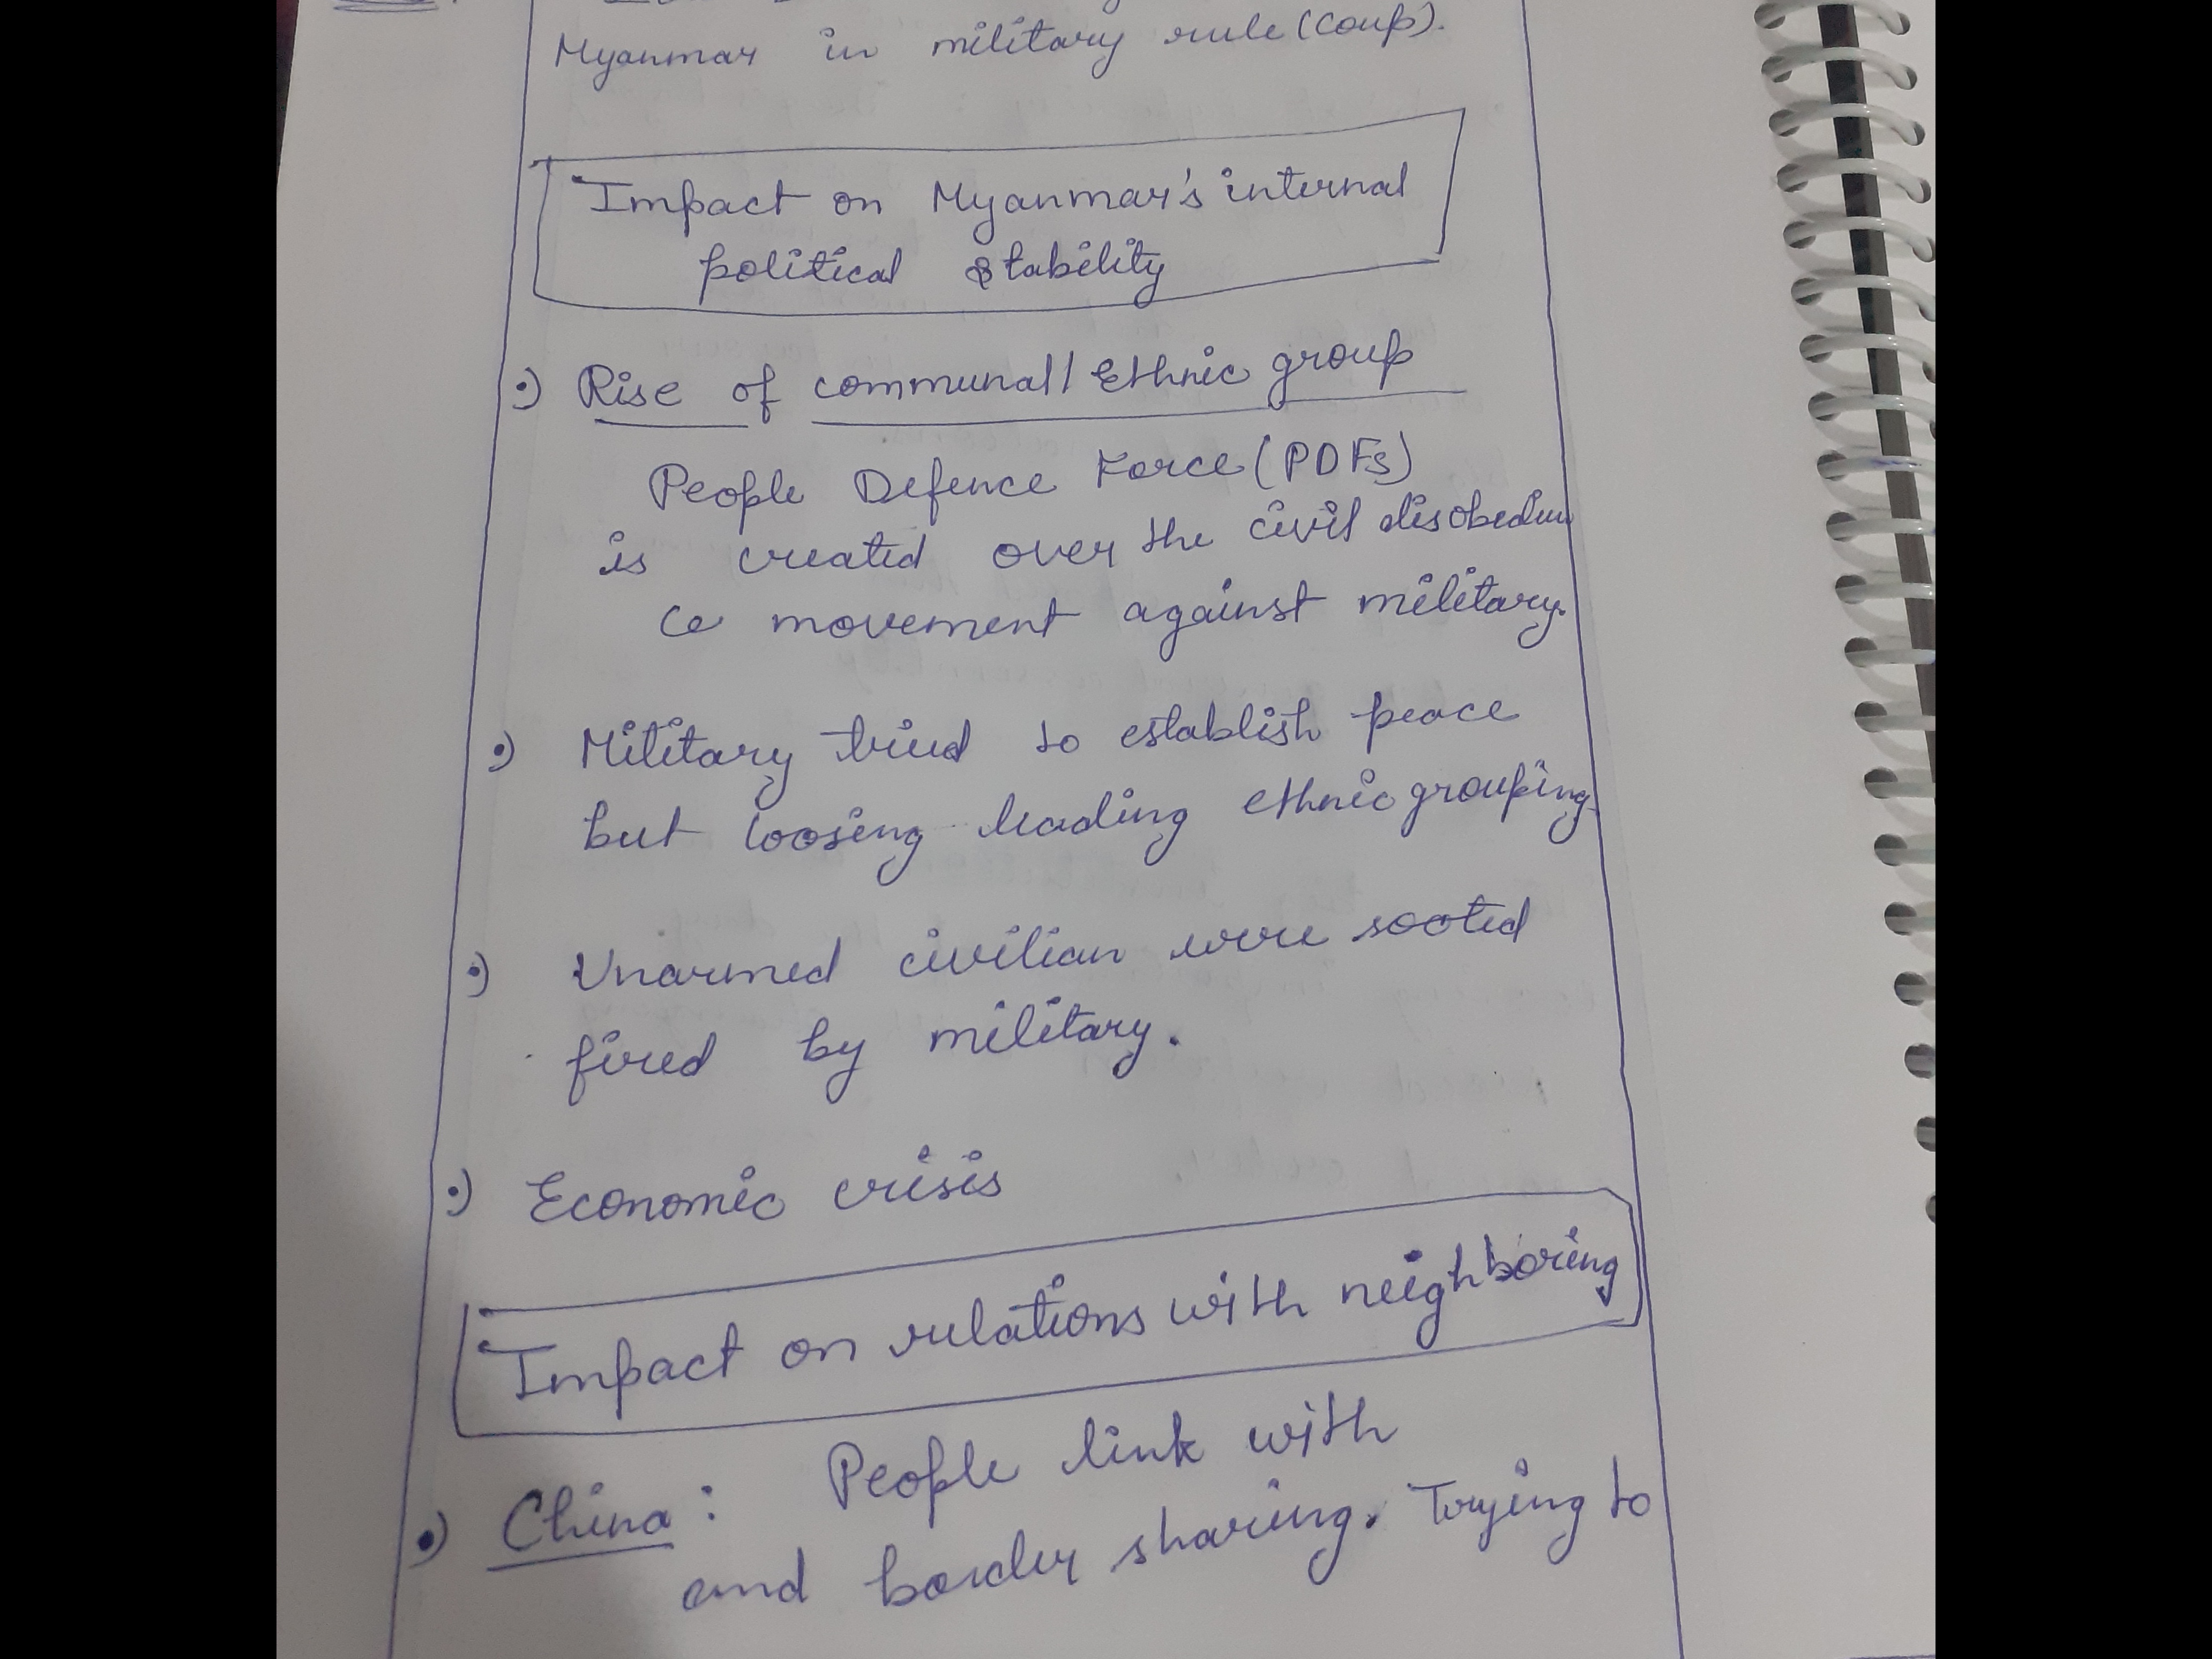 Myanmar in military rule (Coup).
Impact on Myanmar's internal
political stability
Rise of communal/ Ethnic group
People Defence Force (PDFs)
is created over the civil disobedien
ce movement against military.
Military tried to establish peace
but loosing leading ethnic grouping.
Unarmed civilian were sooted
fired by military.
Economic crisis
Impact on relations with neighboring
China : People link with
and border sharing. Trying to